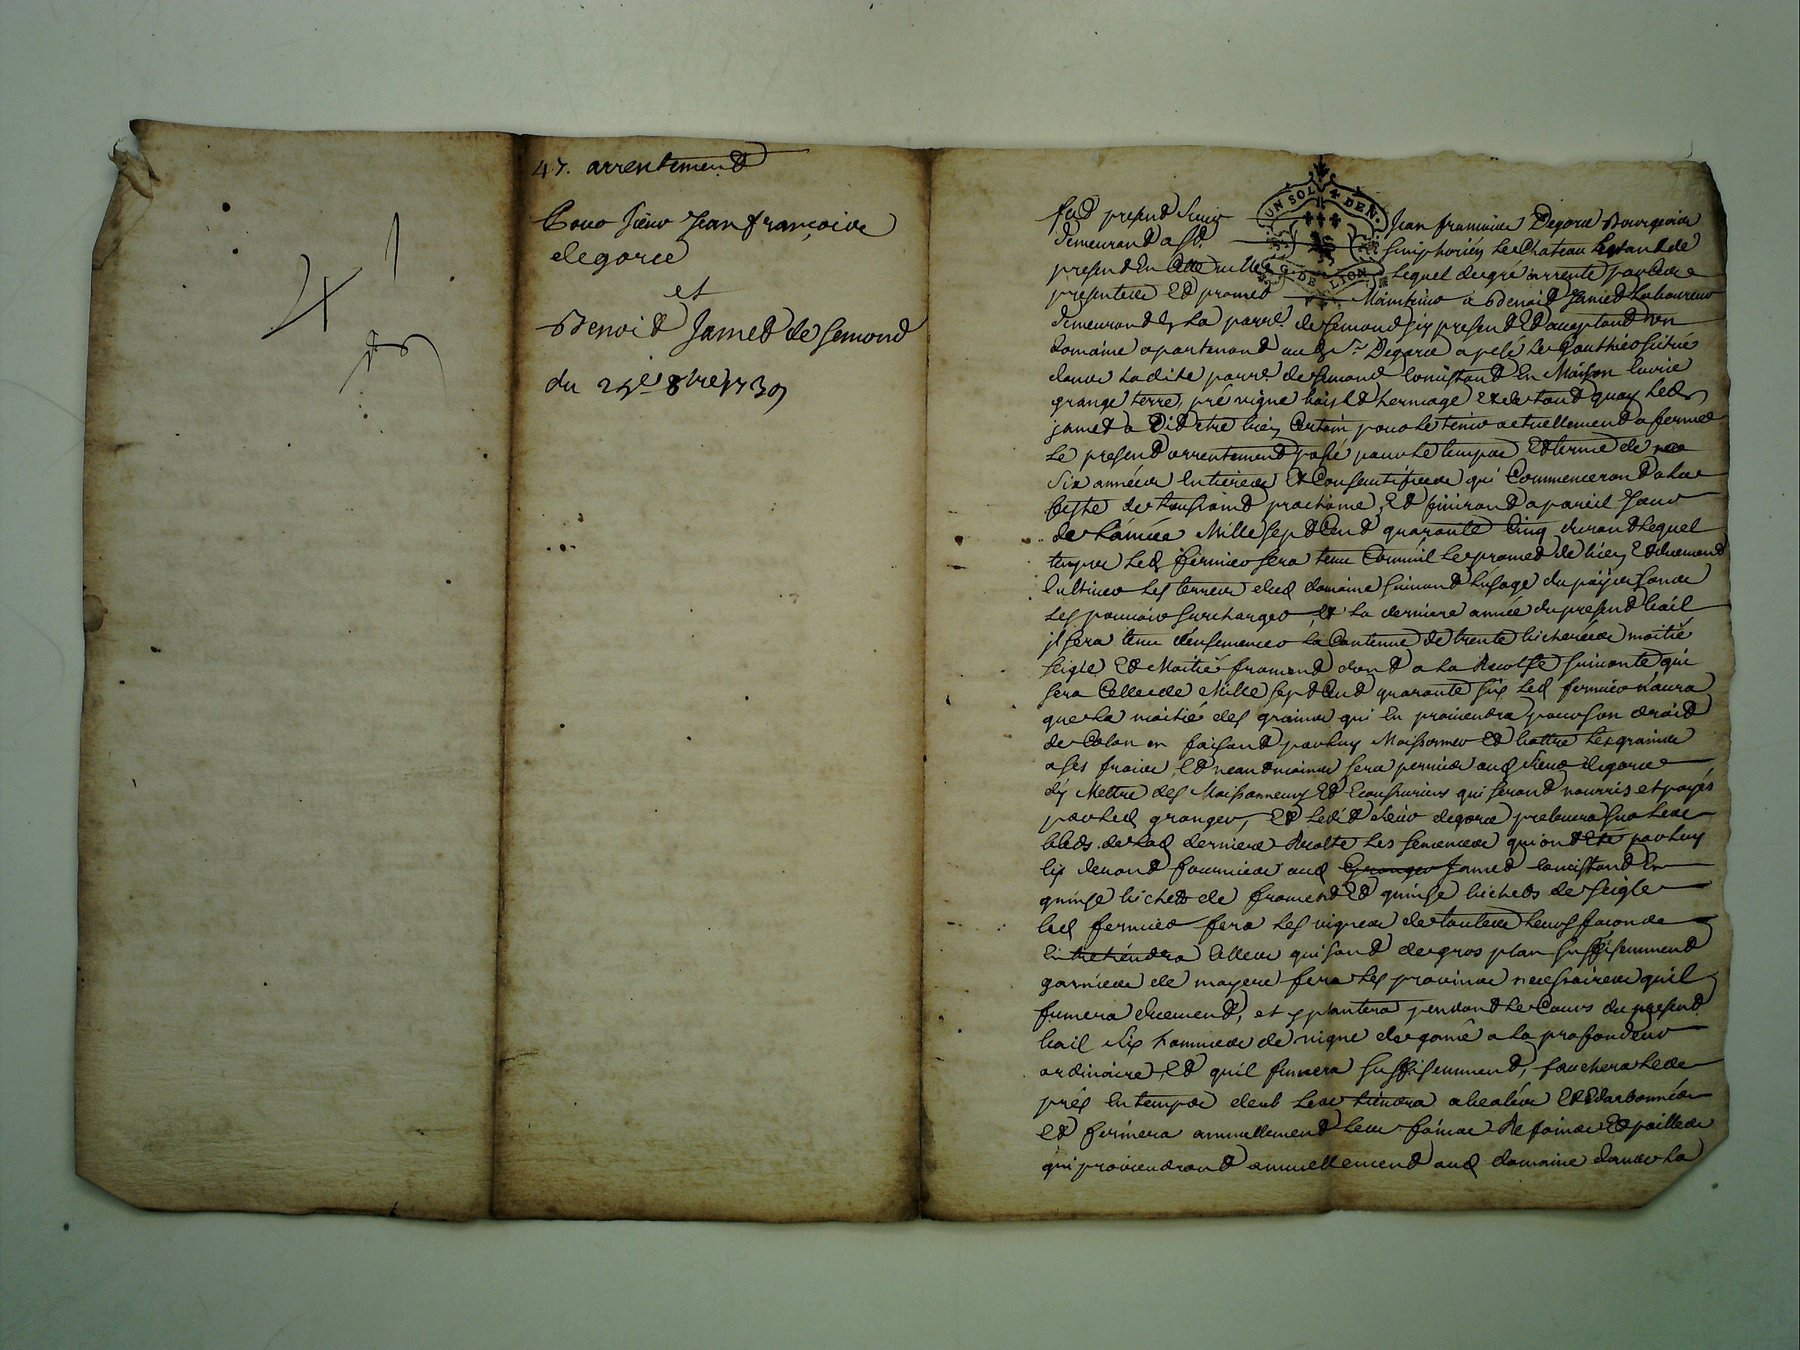 47. arrentement
Pour sieur Jean françois
degorce
et
Benoit Jamet de semond
du 25e 8bre 1739
UN SOL 4 DEN.
G. DE LION
fut present sieur Jean francois Degorce Bourgeois
demeurant a St. simphorien le Chateau Estant de
present en Cette ville lequel de gré arrente par Ces
presentes Et promet Maintenir a Benoit Jamet Laboureur
demeurant en la parre. de semond icy present Et acceptant un
domaine apartenant aud sr. Degorce apelé le Gouthier situé
dans ladite parre. de semond Consistant En Maison Curie
grange terre, pré vigne bois Et hermage Et de tout quoy led
jamet a Dit etre bien Certain pour le tenir actuellement a ferme
le present arrentement passé pour le temps Et terme de
Six années Entieres Et Consecutives qui Commenceront a la
feste de toussaint prochaine Et finiront a pareil Jour
de L'année Mille sept Cent quarante Cinq durant lequel
temps led fermier sera tenu Comm'il le promet de bien Et duement
Cultiver les terres dud domaine suivant L'usage du pays sans
les pouvoir surcharger, Et la derniere année du present bail
il sera tenu d'ensemencer la Contenue de trente bicherées moitié
seigle Et Moitié froment dont a la Recolte suivante qui
sera Celle de Mille sept Cent quarante six led fermier n'aura
que la moitié des grains qui En proviendra pour son droit
de Colon en faisant par luy Moissonner Et battre les grains
a ses frais, Et neantmoins sera permis aud sieur degorce
d'y Mettre des Moissonneurs Et Ecoussuriers qui seront nourris et payés
par led granger, Et led. sieur degorce prelevera sur les
bleds de lad derniere Recolte les semences qui ont Eté par luy
cy devant fournies aud Granger Jamet Consistant En
quinse bichets de froment Et quinse bichets de seigle
led fermier fera les vignes de toutes leurs façons
Entretiendra Celles qui sont de gros plan suffisamment
garnies de fera les provins necessaires qu'il
fumera duement, et y plantera pendant le Cours du present
bail six hommées de vigne de gamé a la profondeur
ordinaire, Et qu'il fumera suffisamment, fauchera les
prés En temps deub les tiendra Et
Et fermera annuellement les foins Refoins Et pailles
qui proviendront annuellement aud domaine dans la